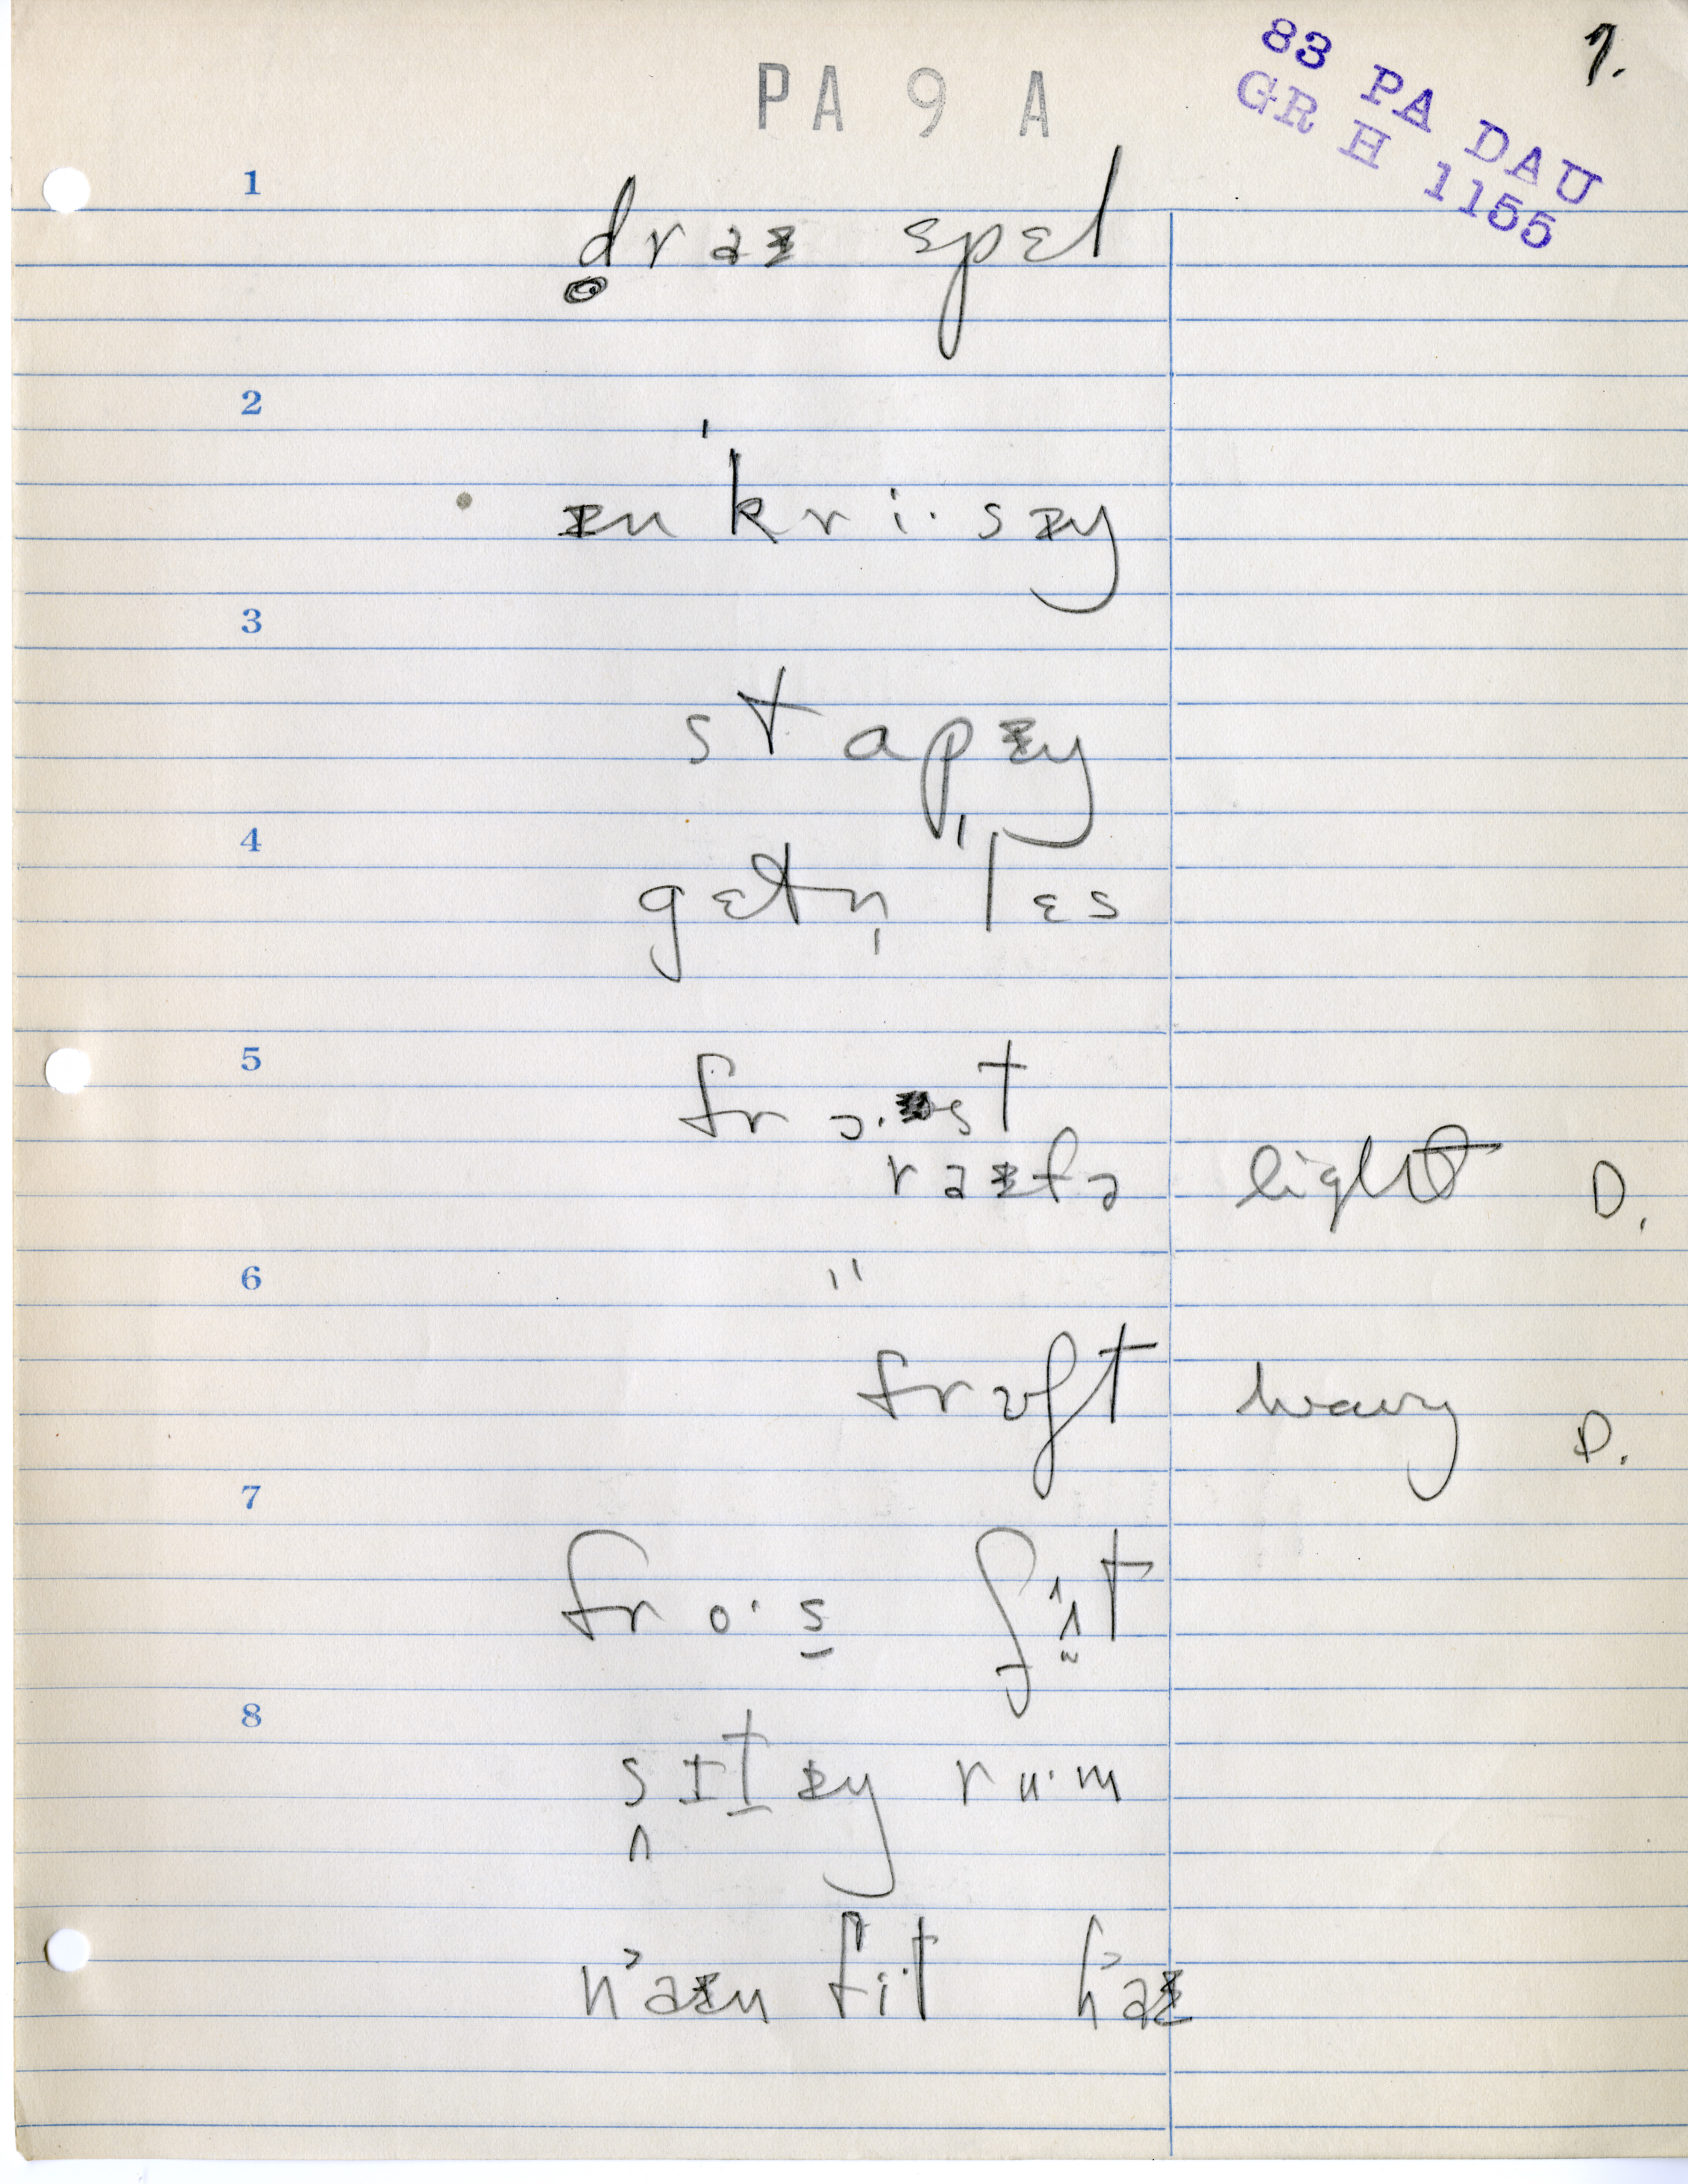 PA 9 A
1.
83 PA DAU
GR H 1155
1
d̥raɪ spɛl
2
ɪn'kri·sɪŋ
3
stapɪŋ
4
gɛtn̩ 'lɛs
5
frɔ·st
raɪfə light D.
6
"
frɔʃt heavy D.
7
fro·s̠
8
sɪt̠ɪŋ ru·m
naɪn fi·t haɪ